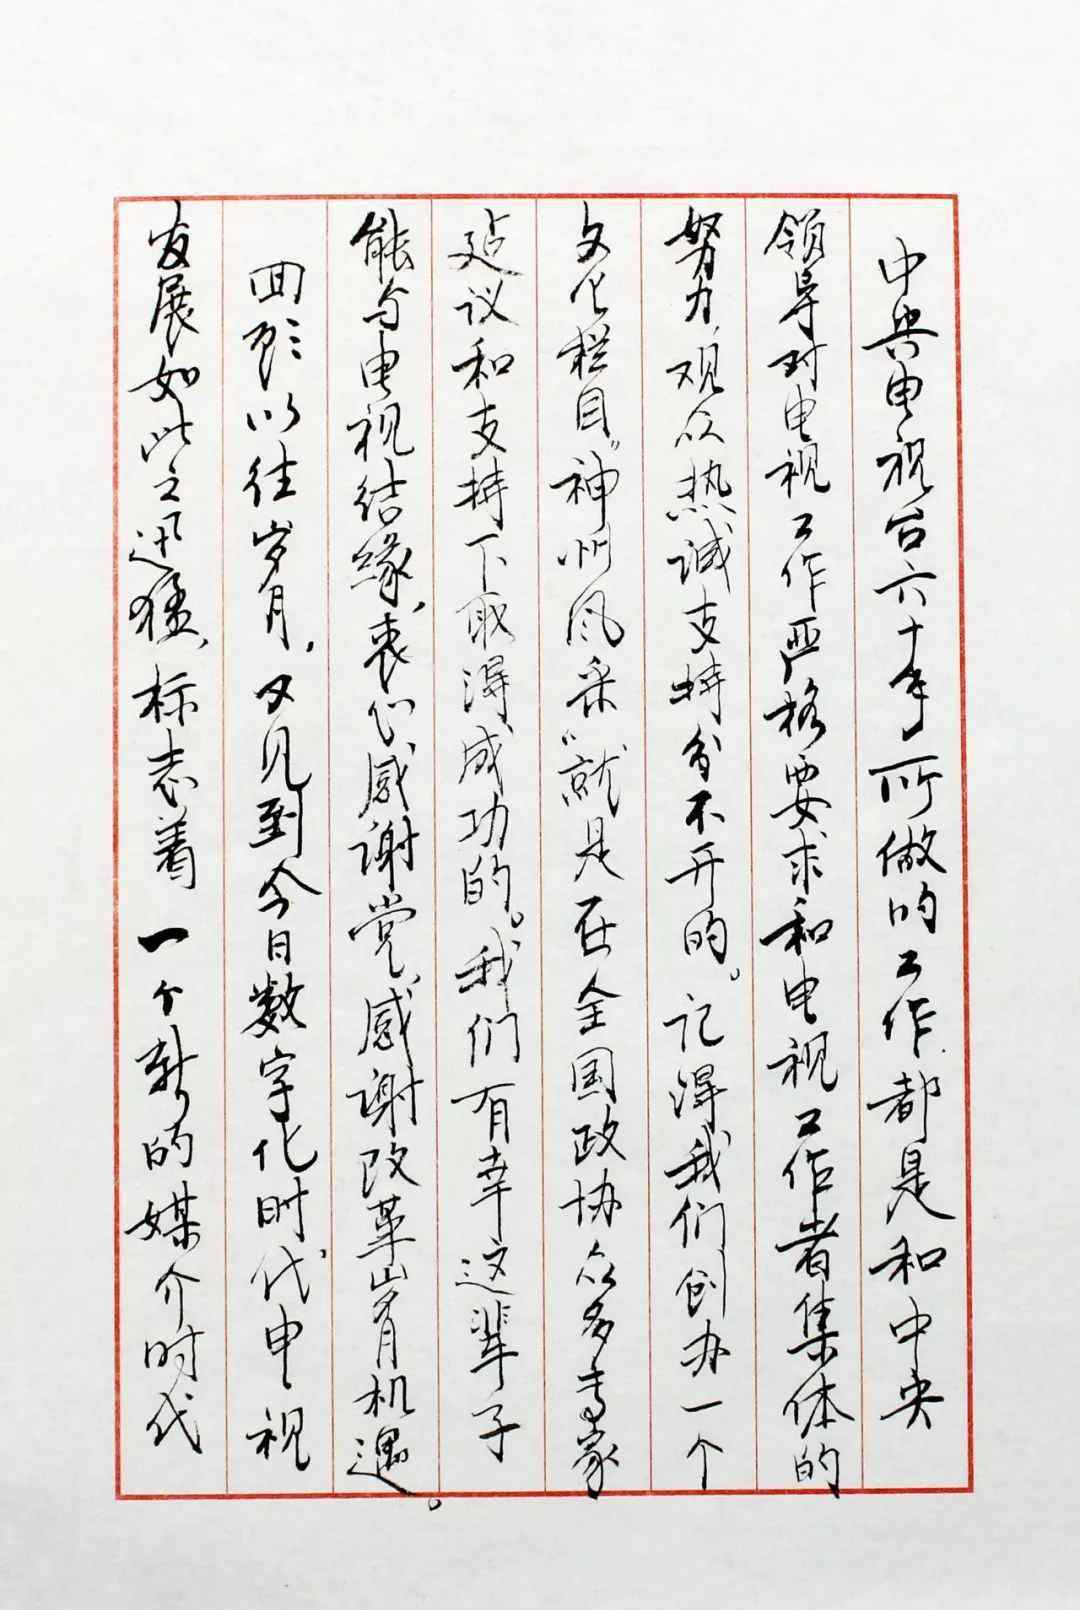 中央电视台六十年所做的工作都是和中央
领导对电视工作严格要求和电视工作者集体的
努力，观众热诚支持分不开的。记得我们创办一个
文化栏目“神州风采”就是在全国政协众多专家
建议和支持下取得成功的。我们有幸这辈子
能与电视结缘，衷心感谢党，感谢改革岁月机遇。
回顾以往岁月，又见到今日数字化时代电视
发展如此之迅猛，标志着一个新的媒介时代